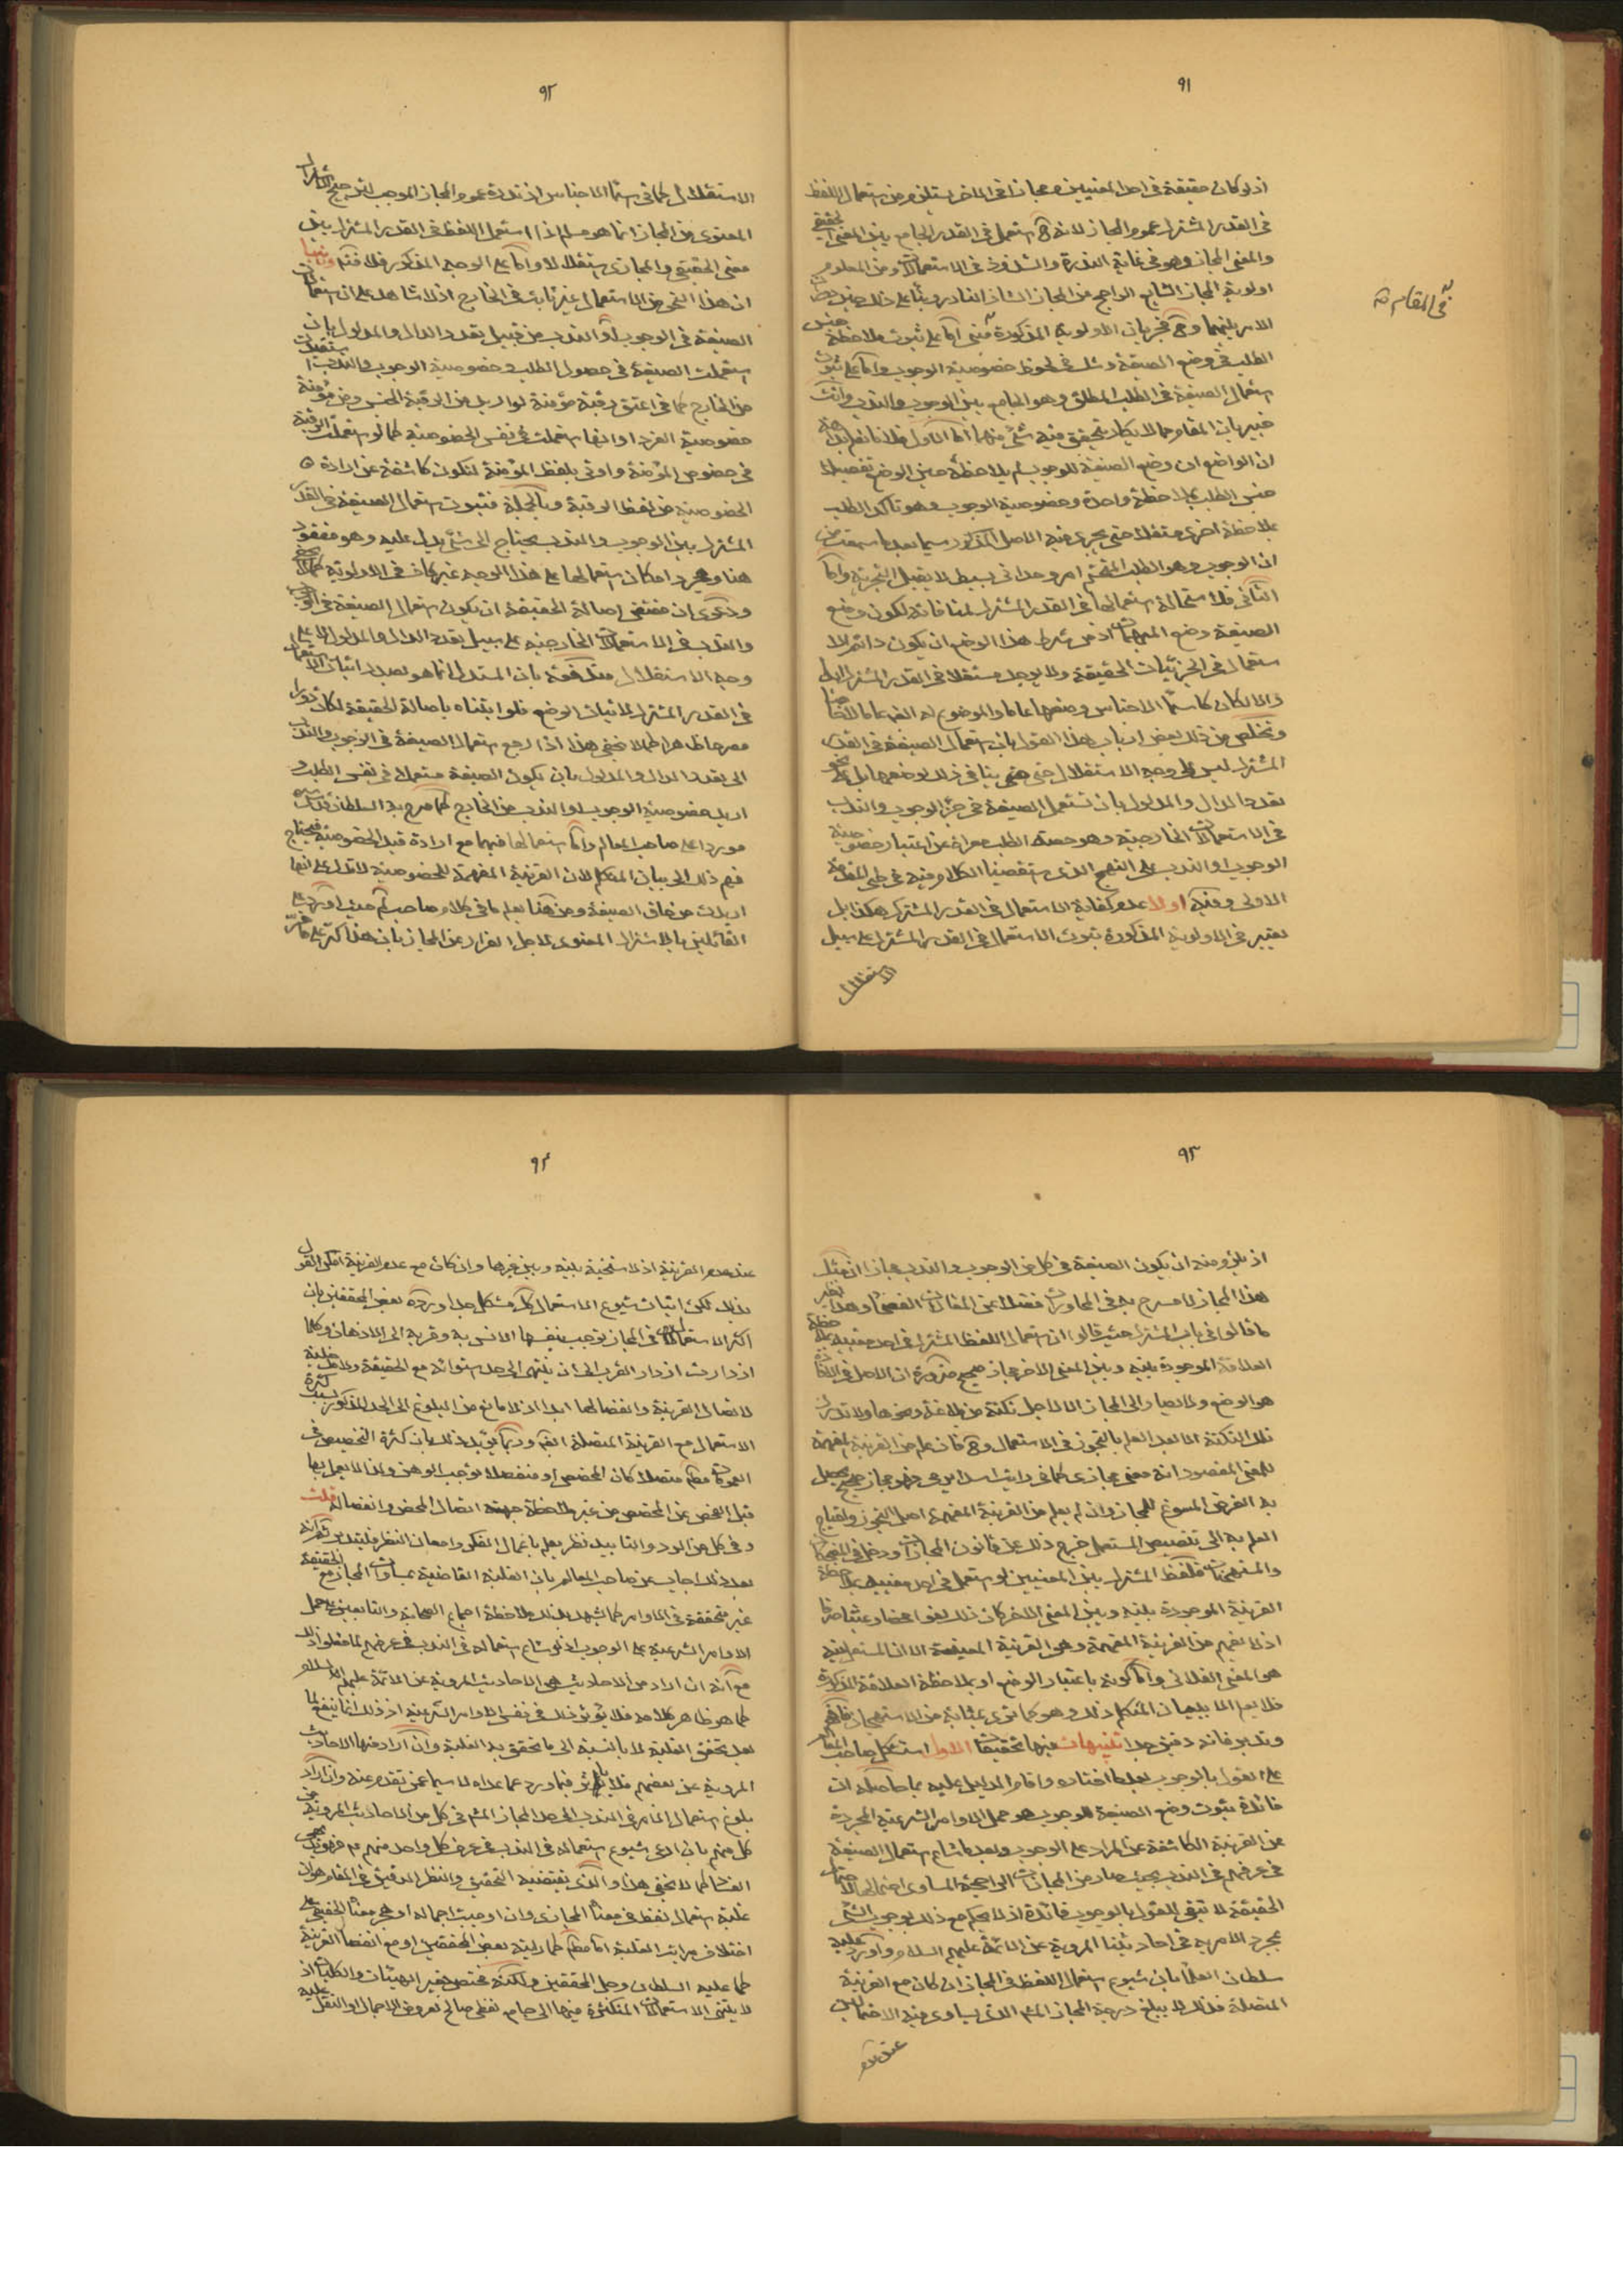 ٩١
اذ لو كان حقيقة فى احد المعنيين ومجازا فى الاخر يستلزم من استعمال اللفظ
فى القدر المشترك عموم المجاز لانه ح استعمل فى القدر الجامع بين المعنى الحقيقى
والمعنى المجازى وهو فى غاية الندرة والشذوذ فى الاستعمالات ومن المعلوم
اولوية المجاز الشايع الراجح من المجاز الشاذ النادر وبناء على ذلك حين
الامر بينهما وح فجريان الاولوية المذكورة مبنى اما على ثبوت ملاحظة جنس
فى المقام
الطلب فى وضع الصيغة وشك فى لحوظ خصوصية الوجوب واما على ثبوت
استعمال الصيغة فى الطلب المطلق وهو الجامع بين الوجوب والندب وانت
خبير بان المقام مما لا يكاد يتحقق فيه شئ منهما اما الاول فلانا نعلم
ان الواضع ان وضع الصيغة للوجوب لم يلاحظه حين الوضع تفصيلا
جنس الطلب بملاحظة واحدة وخصوصية الوجوب وهو تاكد الطلب
بملاحظة اخرى مستقلة حتى يجرى فيه الاصل المذكور سيما بعد ما سمعت من
ان الوجوب وهو الطلب المتحتم امر وحدانى بسيط لا يقبل التجزية واما
الثانى فلاستحالة استعمالها فى القدر المشترك لمنافاته لكون وضع
الصيغة وضع المبهمات اذ من شرط هذا الوضع ان يكون دائم الا
ستعمال فى الجزئيات الحقيقة ولا يوجد مستقلا فى القدر المشترك ابدا
والا لكان كاسماء الاجناس وضعها عاما والموضوع له ايضا عاما لا خاصا
وتخلص من ذلك بعض ارباب هذا القول بان استعمال الصيغة فى القدر
المشترك ليس على وجه الاستقلال حتى ينافى ذلك لوضعها بل على نحو
تعدد الدال والمدلول بان تستعمل الصيغة فى جزء الوجوب والندب
فى الاستعمالات الخارجية وهو حصة الطلب معراة عن اعتبار خصوصية
الوجوب او الندب على النهج الذى استقصينا الكلام فيه فى طى المقدمة
الاولى وفيه اولا عدم كفاية الاستعمال فى القدر المشترك هكذا بل
يعتبر فى الاولوية المذكورة ثبوت الاستعمال فى القدر المشترك على سبيل
الاستقلال
٩٢
الاستقلال كما فى اسماء الاجناس اذ ندرة عموم المجاز الموجب لترجيح الاشتراك
المعنوى من المجاز انما هو مسلم اذا استعمل اللفظ فى القدر المشترك بين
معنى الحقيقى والمجازى استقلالا واما على الوجه المذكور فلا فتم وثانيا
ان هذا النحو من الاستعمال غير ثابت فى الخارج اذ لا شاهد على ان استعمال
الصيغة فى الوجوب او الندب من قبيل تعدد الدال والمدلول بان
استعملت الصيغة فى حصول الطلب وخصوصية الوجوب والندب استفيدت
من الخارج كما فى اعتق رقبة مؤمنة لو اريد من الرقبة الجنس ومن مؤمنة
خصوصية الفرد او انها استعملت فى نفس الخصوصية كما لو استعملت الرقبة
فى خصوص المؤمنة واوتى بلفظ المؤمنة لتكون كاشفة عن ارادة
الخصوصية من لفظ الرقبة وبالجملة فثبوت استعمال الصيغة فى القدر
المشترك بين الوجوب والندب يحتاج الى شئ يدل عليه وهو مفقود
هنا ومجرد امكان استعمالها على هذا الوجه غير كاف فى الاولوية
ودعوى ان مقتضى اصالة الحقيقة ان يكون استعمال الصيغة فى الوجوب
والندب فى الاستعمالات الخارجية على سبيل تعدد الدال والمدلول لا على
وجه الاستقلال مدفوعة بان المستدل انما هو بصدد اثبات الاستعمال
فى القدر المشترك لاثبات الوضع فلو اثبتناه باصالة الحقيقة لكان دورا
مصرحا ظاهرا كما لا يخفى هذا اذا ارجع استعمال الصيغة فى الوجوب والندب
الى تعدد الدال والمدلول بان يكون الصيغة مستعملة فى نفس الطلب و
اريد خصوصية الوجوب او الندب من الخارج كما صرح به السلطان قدس سره
موردا على صاحب المعالم واما استعمالها فيهما مع ارادة قيد الخصوصية فيحتاج
فهم ذلك الى بيان المتكلم لان القرينة المفهمة للخصوصية لا تدل على انها
اريدت من نفس الصيغة ومن هنا يعلم ما فى كلام صاحب لم حيث اورد على
القائلين بالاشتراك المعنوى لاجل الفرار عن المجاز بان هذا كر على ما فر
٩٣
اذ يلزم منه ان يكون الصيغة فى كل من الوجوب والندب مجازا اذ مثل
هذا المجاز لا مسرح به فى المحاورات فضلا عن المقالات الفصحى وهذا نظير
ما قالوا فى باب المشترك حيث قالوا ان استعمال اللفظ المشترك فى احد معنييه بملاحظة
العلاقة الموجودة بينه وبين المعنى الاخر مجاز صحيح ضرورة ان الاصل فى الالفاظ
هو الوضع ولا يصار الى المجاز الا لاجل نكتة من بلاغة ونحوها ولا تدرك
تلك النكتة الا بعد العلم بالتجوز فى الاستعمال وح فان علم من القرينة المفهمة
للمعنى المقصود انه معنى مجازى كما فى رايت اسدا يرمى فهو مجاز صحيح يحصل
به الغرض المسوغ للمجاز وان لم يعلم من القرينة المفهمة اصل التجوز واحتياج
العلم به الى تنصيص المستعمل خرج ذلك عن قانون المجازات ودخل فى المضحكات
والمستهجنات فلفظ المشترك بين المعنيين لو استعمل فى احد معنييه بملاحظة
القرينة الموجودة بينه وبين المعنى الاخر كان ذلك لغوا محضا وعبثا صرفا
اذ لا يفهم من القرينة المفهمة وهى القرينة المعينة الا ان المستعمل فيه
هو المعنى الفلانى واما كونه باعتبار الوضع او بملاحظة العلاقة المذكورة
فلا يعلم الا ببيان المتكلم ذلك وهو كما ترى بمثابة من الاستهجان فافهم
وتدبر فانه دقيق جدا تنبيهات فيها تحقيقات الاول استشكل صاحب المعالم
على القول بالوجوب بعد ما اختاره واقام الدليل عليه بما حاصله ان
فائدة ثبوت وضع الصيغة للوجوب هو حمل الاوامر الشرعية المجردة
عن القرينة الكاشفة عن المراد على الوجوب وبعد ما شاع استعمال الصيغة
فى عرفهم فى الندب بحيث صار من المجازات الراجحة المساوى احتمالها لاحتمال
الحقيقة لا تبقى للقول بالوجوب فائدة اذ لا يحكم مع ذلك بوجوب الشئ
بمجرد الامر به فى احاديثنا المروية عن الائمة عليهم السلام واورد عليه
سلطان العلماء بان شيوع استعمال اللفظ فى المجاز ان كان مع القرينة
المتصلة فذلك لا يبلغ درجة المجاز المشهور الذى يساوى فيه الاحتمالين
عند عدم
٩٤
عند عدم القرينة اذ لا سنخية بينه وبين غيرها وان كان مع عدم القرينة امكن القول
بذلك لكن اثبات شيوع الاستعمال كك مشكل جدا ورده بعض المحققين بان
اكثر الاستعمالات فى المجاز توجب بنفسها الانس به وقربه الى الاذهان وكلما
ازدادت ازداد القرب الى ان ينتهى الى حد استوائه مع الحقيقة ولا مدخلية
لاتصال القرينة وانفصالها ابدا اذ لا مانع من البلوغ الى الحد المذكور بسبب كثرة
الاستعمال مع القرينة المتصلة ايضا وربما يؤيد ذلك بان كثرة التخصيص فى
العمومات مط متصلا كان المخصص او منفصلا توجب الوهن ولذا لا يعمل بها
قبل الفحص عن المخصص من غير ملاحظة جهة اتصال المخصص وانفصاله قلت
وفى كل من الرد والتاييد نظر يعلم باعمال الفكر وامعان النظر فليتدبر ثم انه
بعد ذلك اجاب عن صاحب المعالم بان الغلبة القاضية بمساوات المجاز مع الحقيقة
غير متحققة فى الاوامر كما يشهد بذلك ملاحظة اجماع الصحابة والتابعين بحمل
الاوامر الشرعية على الوجوب اذ لو شاع استعماله فى الندب فى عرفهم لما فعلوا ذلك
مع انه ان اراد من الاحاديث هى الاحاديث المروية عن الائمة عليهم السلام
كما هو ظاهر كلامه فلا يؤثر ذلك فى نفس الاوامر الشرعية اذ ذلك انما ينفع
بعد تحقق الغلبة لا بالنسبة الى ما تحقق به الغلبة وان اراد منها الاحاديث
المروية عن بعضهم فلا يؤثر فيما ورد عما عداه لا سيما عمن تقدم عنه وان اراد
بلوغ استعمال الامر فى الندب الى حد المجاز المشهور فى كل من الاحاديث المروية عن
كل منهم بان ادعى شيوع استعماله فى الندب فى عرف كل واحد منهم
الفساد كما لا يخفى هذا والذى يقتضيه التحقيق والنظر الدقيق فى المقام هو ان
غلبة استعمال لفظ فى معناه المجازى وان اوجبت اجماله او هجر معناه الحقيقى على
اختلاف مراتب الغلبة اما مط كما رايته بعض المحققين او مع انفصال القرينة
كما عليه السلطان وجل المحققين ولكنه مختص بغير الهيئات والكليات اذ
لا ينتهى الاستعمالات المتكثرة فيهما الى جامع لفظى صالح لعروض الاجمال او النقل عليه